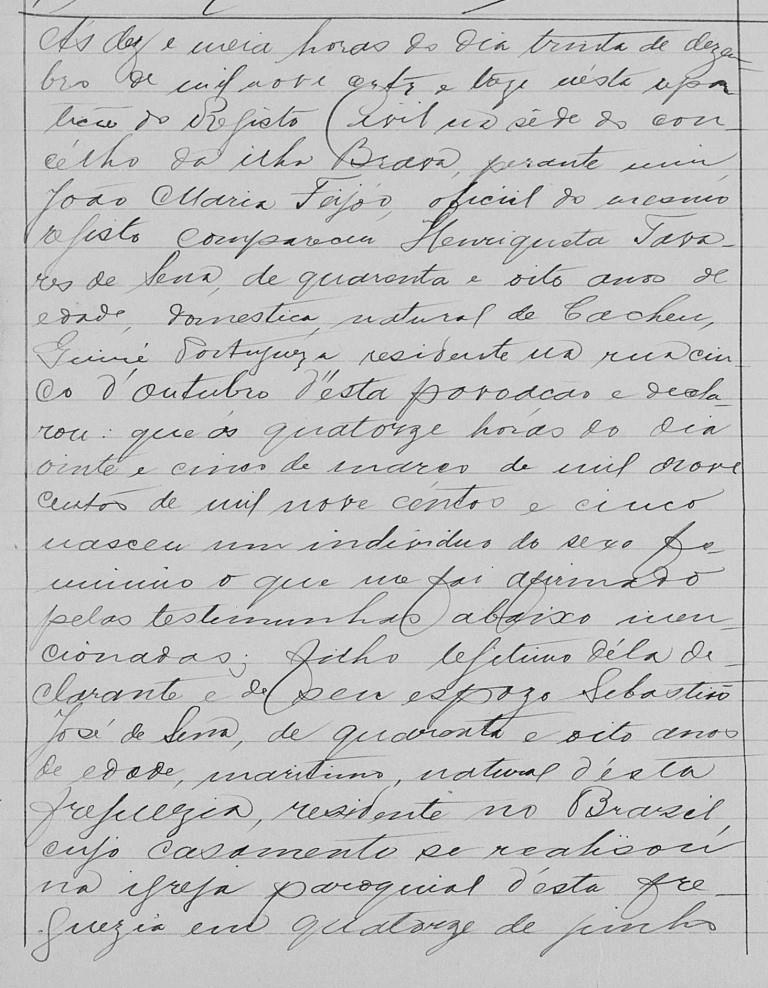 Ás dez e meia horas do dia trinta de dezem-
bro de mil nove centos e treze nésta repar
tição do Registo Civil na séde do con-
cêlho da ilha Brava, perante mim
João Maria Feijóo, oficial do mesmo
registo compareceu Henriqueta Tava-
res de Sena, de quarenta e oito anos de
edade, domestica, natural de Cacheu,
Guiné Portugueza residente na rua cin-
co d'Outubro d'ésta povoacão e decla-
rou: que ás quatorze horas do dia
vinte e cinco de março de mil nove
centos de mil nove centos e cinco
nasceu um individuo do sexo fe-
minino o que me foi afirmado
pelas testimunhas abaixo men-
cionadas; filho lejitimo déla de-
clarante e de seu espozo Sebastião
José de Sena, de quarenta e oito anos
de edade, maritimo, natural d'ésta
freguezia, residente no Brazil,
cujo casamento se realisou
na igreja paroquial d'ésta fre-
guezia em quatorze de junho